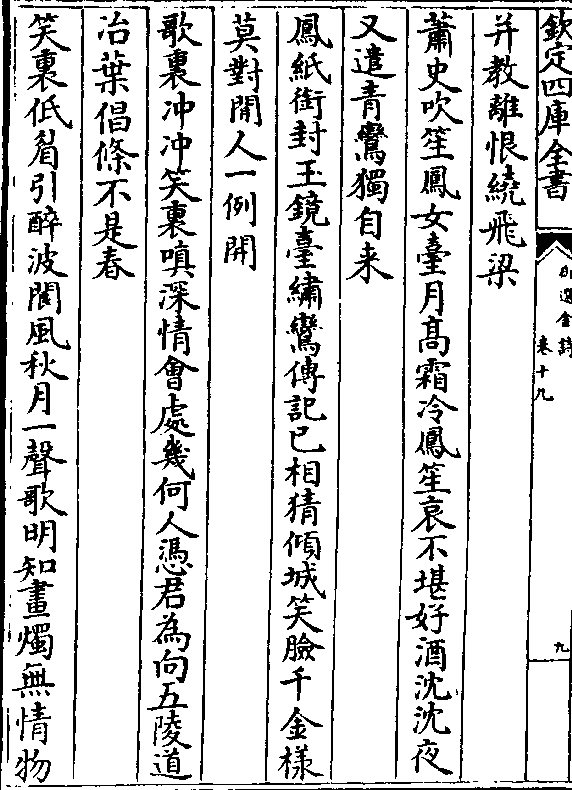 欽定四庫全書
御選金詩
卷十九
九
并教離恨繞飛梁
蕭史吹笙鳳女臺月髙霜冷鳳笙哀不堪好酒沈沈夜
又遣青鸞獨自来
鳳紙銜封玉鏡臺繡鸞傳記已相猜傾城笑臉千金様
莫對閒人一例開
歌裏冲冲笑裏嗔深情會處幾何人憑君為向五陵道
冶葉倡條不是春
笑裏低眉引醉波閬風秋月一聲歌明知畫燭無情物